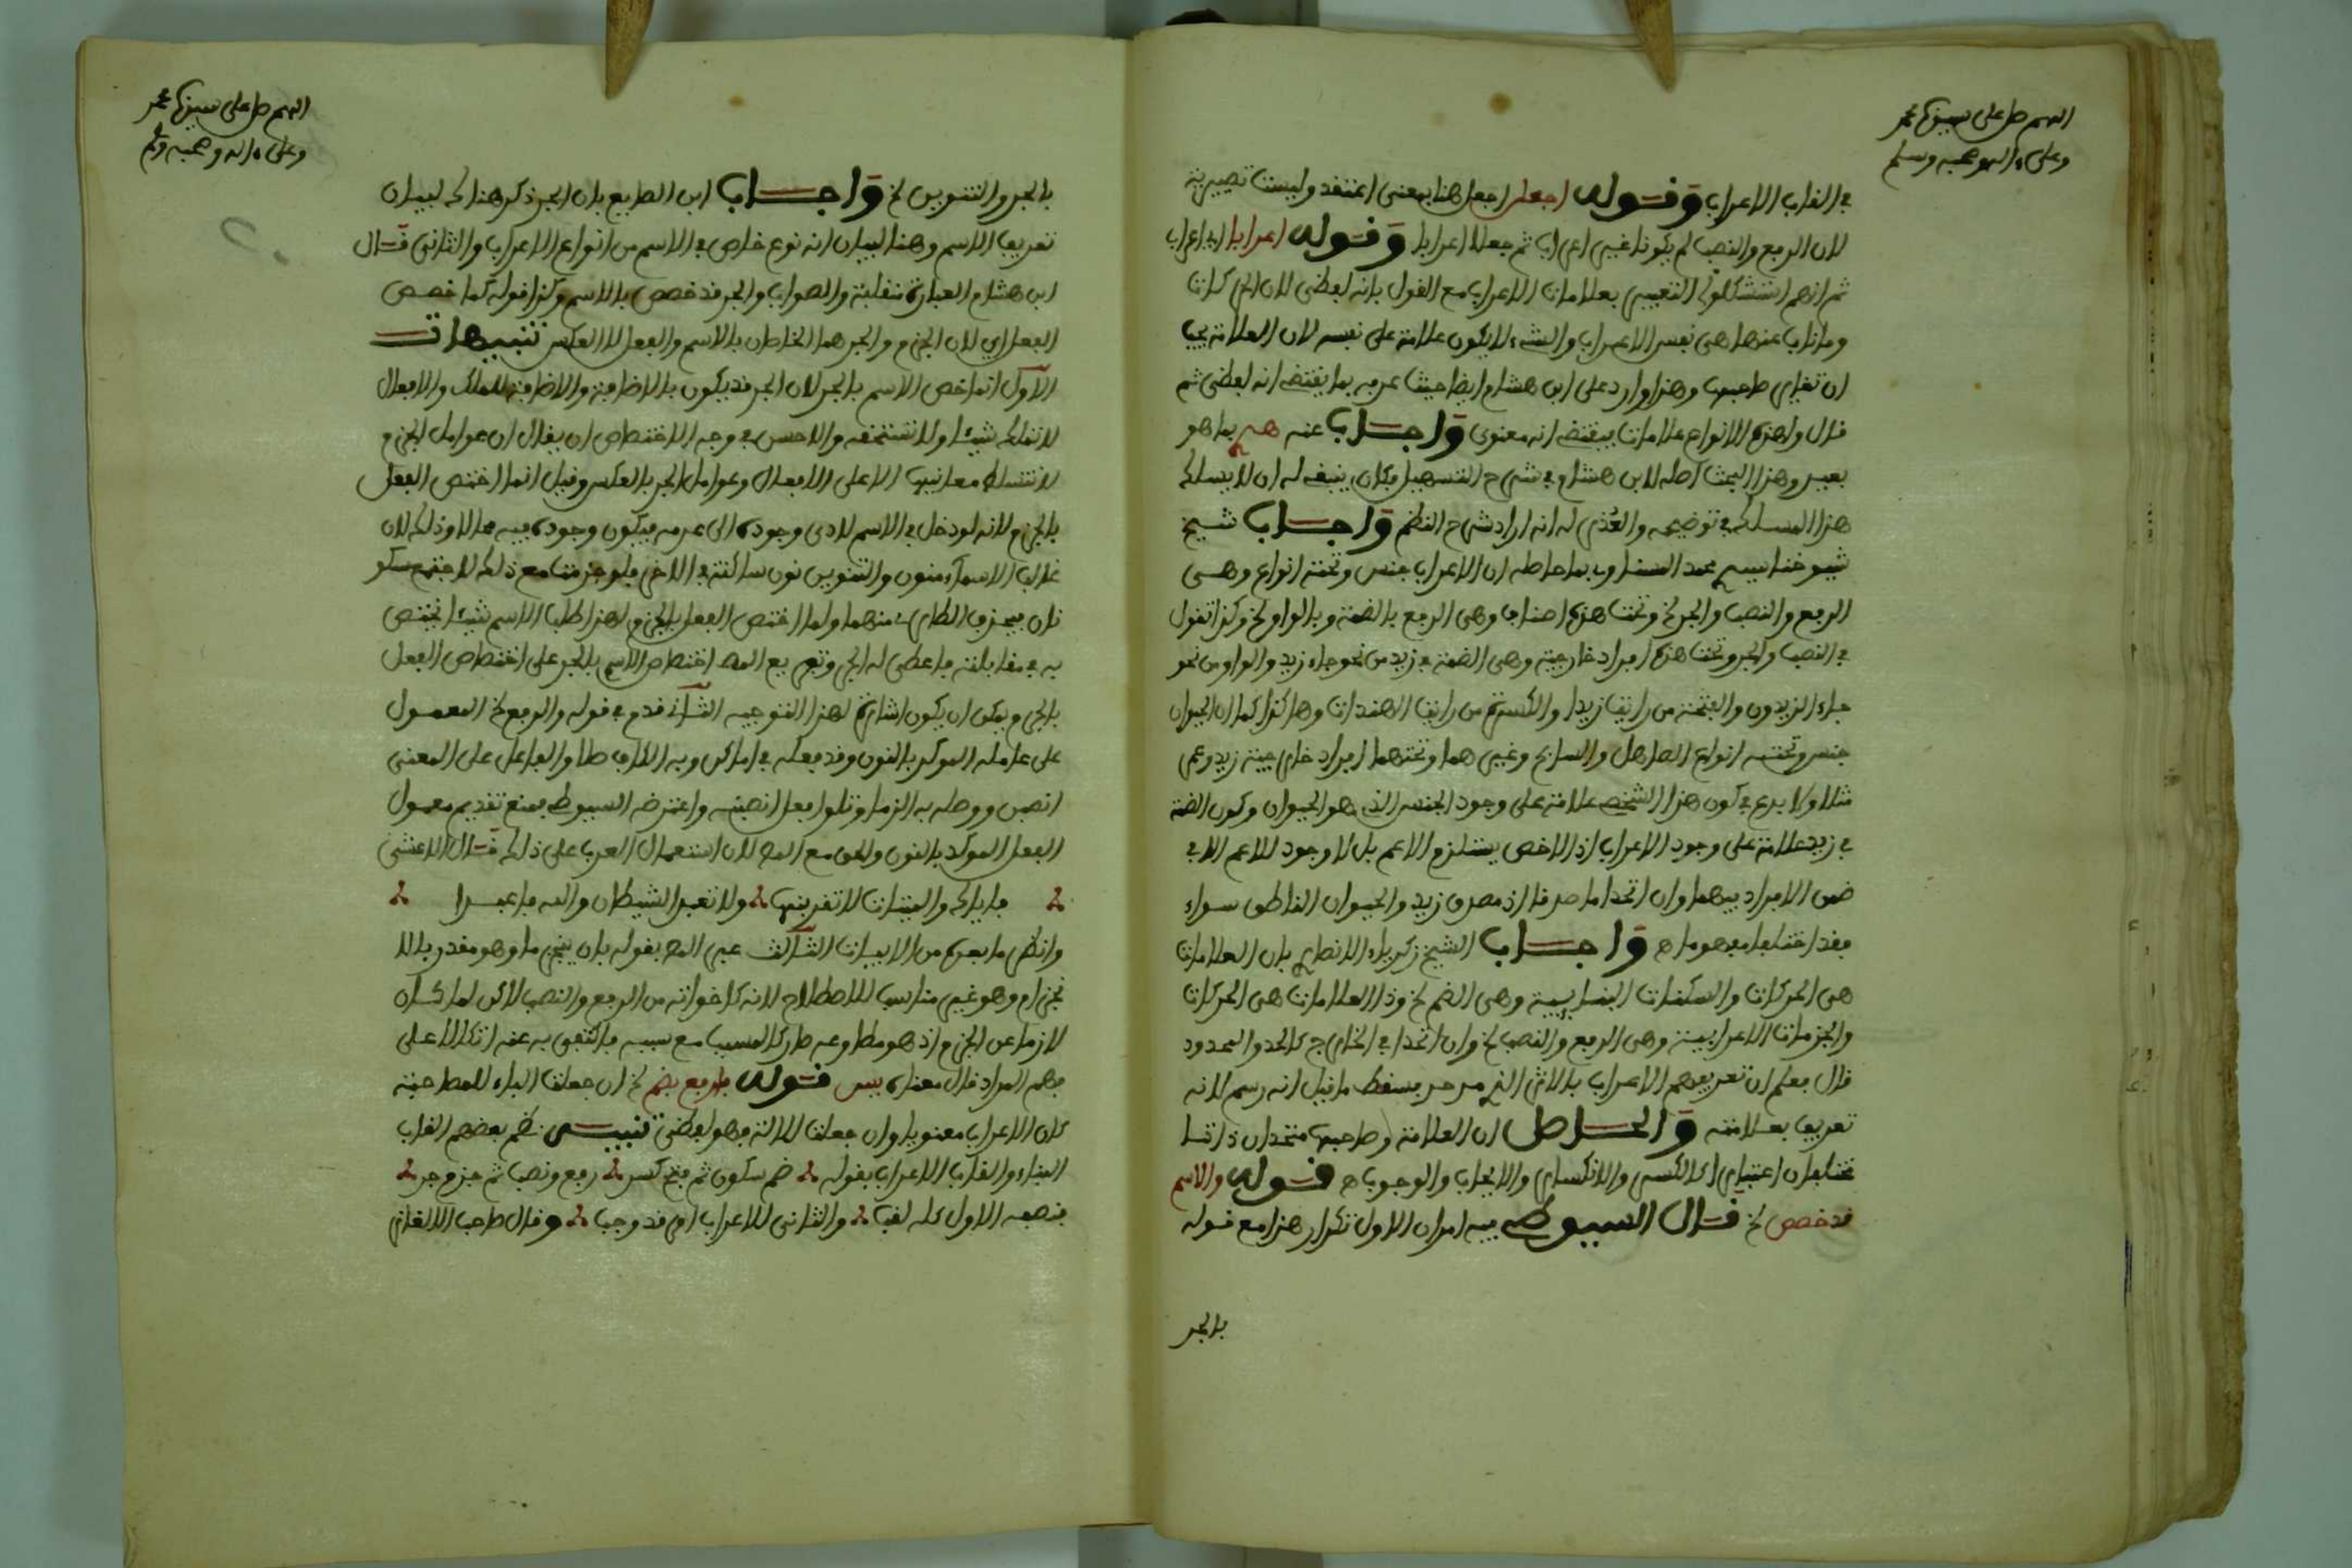 اللهم صل على سيدنا محمد
وعلى ءاله وصحبه وسلم
في القاب الاعراب وقوله اجعلن اجعل هنا بمعنى اعتقد وليست تصييرية
لان الرفع والنصب لم يكونا غير اعراب ثم جعلا اعرابا وقوله اعرابا اي اعراب
ثم انهم استشكلوا التعبير بعلامات الاعراب مع القول بانه لفظي لان الحركات
وما ناب عنها هي نفس الاعراب والشيء لا يكون علامة على نفسه لان العلامة يجب
ان تغاير صاحبها وهذا وارد على ابن هشام ايضا حيث عرفه بما يقتضي انه لفظي ثم
قال ولهذه الانواع علامات فيقتضي انه معنوي واجاب عنه بما هو
بعيد وهذا البحث اصله لابن هشام في شرح التسهيل فكان ينبغي له ان لا يسلك
هذا المسلك في توضيحه والعذر له انه اراد شرح النظم واجاب شيخ
شيوخنا سيدي محمد بما حاصله ان الاعراب جنس وتحته انواع وهي
الرفع والنصب والجر الخ وتحت هذه اصناف وهي الرفع بالضمة وبالواو الخ وكذا تقول
في النصب والجر وتحت هذه افراد خارجية وهي الضمة في زيد من نحو جاء زيد والواو من نحو
جاء الزيدون والفتحة من رايت زيدا والكسرة من رايت الهندات وهاكذا كما ان الحيوان
جنس وتحته انواع الصاهل والسابح وغيرهما وتحتهما افراد خارجية زيد وعمرو
مثلا ولا بدع في كون هذا الشخص علامة على وجود الجنس الذي هو الحيوان وكون الضمة
في زيد علامة على وجود الاعراب اذ الاخص يستلزم الاعم بل لا وجود للاعم الا في
ضمن الافراد فيهما وان اتحدا ما صدقا اذ مصدق زيد والحيوان الناطق سواء
فقد اختلفا مفهوما ه واجاب الشيخ زكرياء الانصاري بان العلامات
هي الحركات والسكنات البنايية وهي الضم الخ وذا العلامات هي الحركات
والجزمات الاعرابية وهي الرفع والنصب الخ وان اتحدا في الخارج كالحد والمحدود
قال فعلم ان تعريفهم الاعراب بالاثر الخ فسقط ما قيل انه رسم لانه
تعريف بعلامته والحاصل ان العلامة وصاحبها متحدان ذاتا
مختلفان اعتبارا كالكسر والانكسار والايجاب والوجوب ه قوله والاسم
قد خصص الخ قال السيوطي فيه امران الاول تكرار هذا مع قوله
بالجر
اللهم صل على سيدنا محمد
وعلى ءاله وصحبه وسلم
بالجر والتنوين الخ واجاب ابن الصايغ بان الجر ذكر هناك لبيان
تعريف الاسم وهنا لبيان انه نوع خاص في الاسم من انواع الاعراب والثاني قال
ابن هشام العبارة منقلبة والصواب والجر قد خصص بالاسم وكذا قوله كما خصص
الفعل اي لان الجزم والجر هما الخاصان بالاسم والفعل لا العكس تنبيهات
الاول انما خص الاسم بالجر لان الجر قد يكون بالاضافة والاضافة للملك والافعال
لا تملك شيئا ولا تستحقه والاحسن في وجه الاختصاص ان يقال ان عوامل الجزم
لا تتسلط معانيها الا على الافعال وعوامل الجر بالعكس وقيل انما اختص الفعل
بالجزم لانه لو دخل في الاسم لادى وجوده الى عدمه فيكون وجوده فيه محالا وذلك لان
غالب الاسماء منون والتنوين نون ساكنة في الاخر فلو جزمت مع ذلك لاجتمع سكو
نان فيحذف الطارئ منهما ولما اختص الفعل بالجزم ولهذا طلب الاسم شيئا يختص
به في مقابلته فاعطي له الجر وتفريع المصـ اختصاص الاسم بالجر على اختصاص الفعل
بالجزم ويمكن ان يكون اشارة لهذا التوجيه الثاني قدم في قوله والرفع الخ المعمول
على عامله الموكد بالنون وقد فعله في اماكن وبه الكاف صلا والفاعل على المعنى
انصبن ووصله به الزما وتلوا فعل انصبنه واعترضه السيوطي بمنع تقديم معمول
الفعل الموكد بالنون والحق مع المصـ لان استعمال العرب على ذلك قال الاعشى
فاياك والميتات لا تقربنها ولا تعبد الشيطان والله فاعبدا
وانظر ما بعده من الابيات الثالث عبر المصـ بقوله بان ينجزما وهو مقدر بالا
نجزام وهو غير مناسب للاصطلاح لانه كاخواته من الرفع والنصب لاكن لما كان
لازما عن الجزم اذ هو مطاوعه صار كالمسبب مع سببه فاكتفى به عنه اتكالا على
فهم المراد قال معناه يس قوله فارفع بضم الخ ان جعلت الباء للمصاحبة
كان الاعراب معنويا وان جعلت للالة فهو لفظي تنبيه نظم بعضهم القاب
البناء والقاب الاعراب بقوله ضم سكون ثم فتح كسر رفع ونصب ثم جزم جر
فنصفه الاول كله لقب والثاني للاعراب امر قد وجب وقال صاحب الالغاز